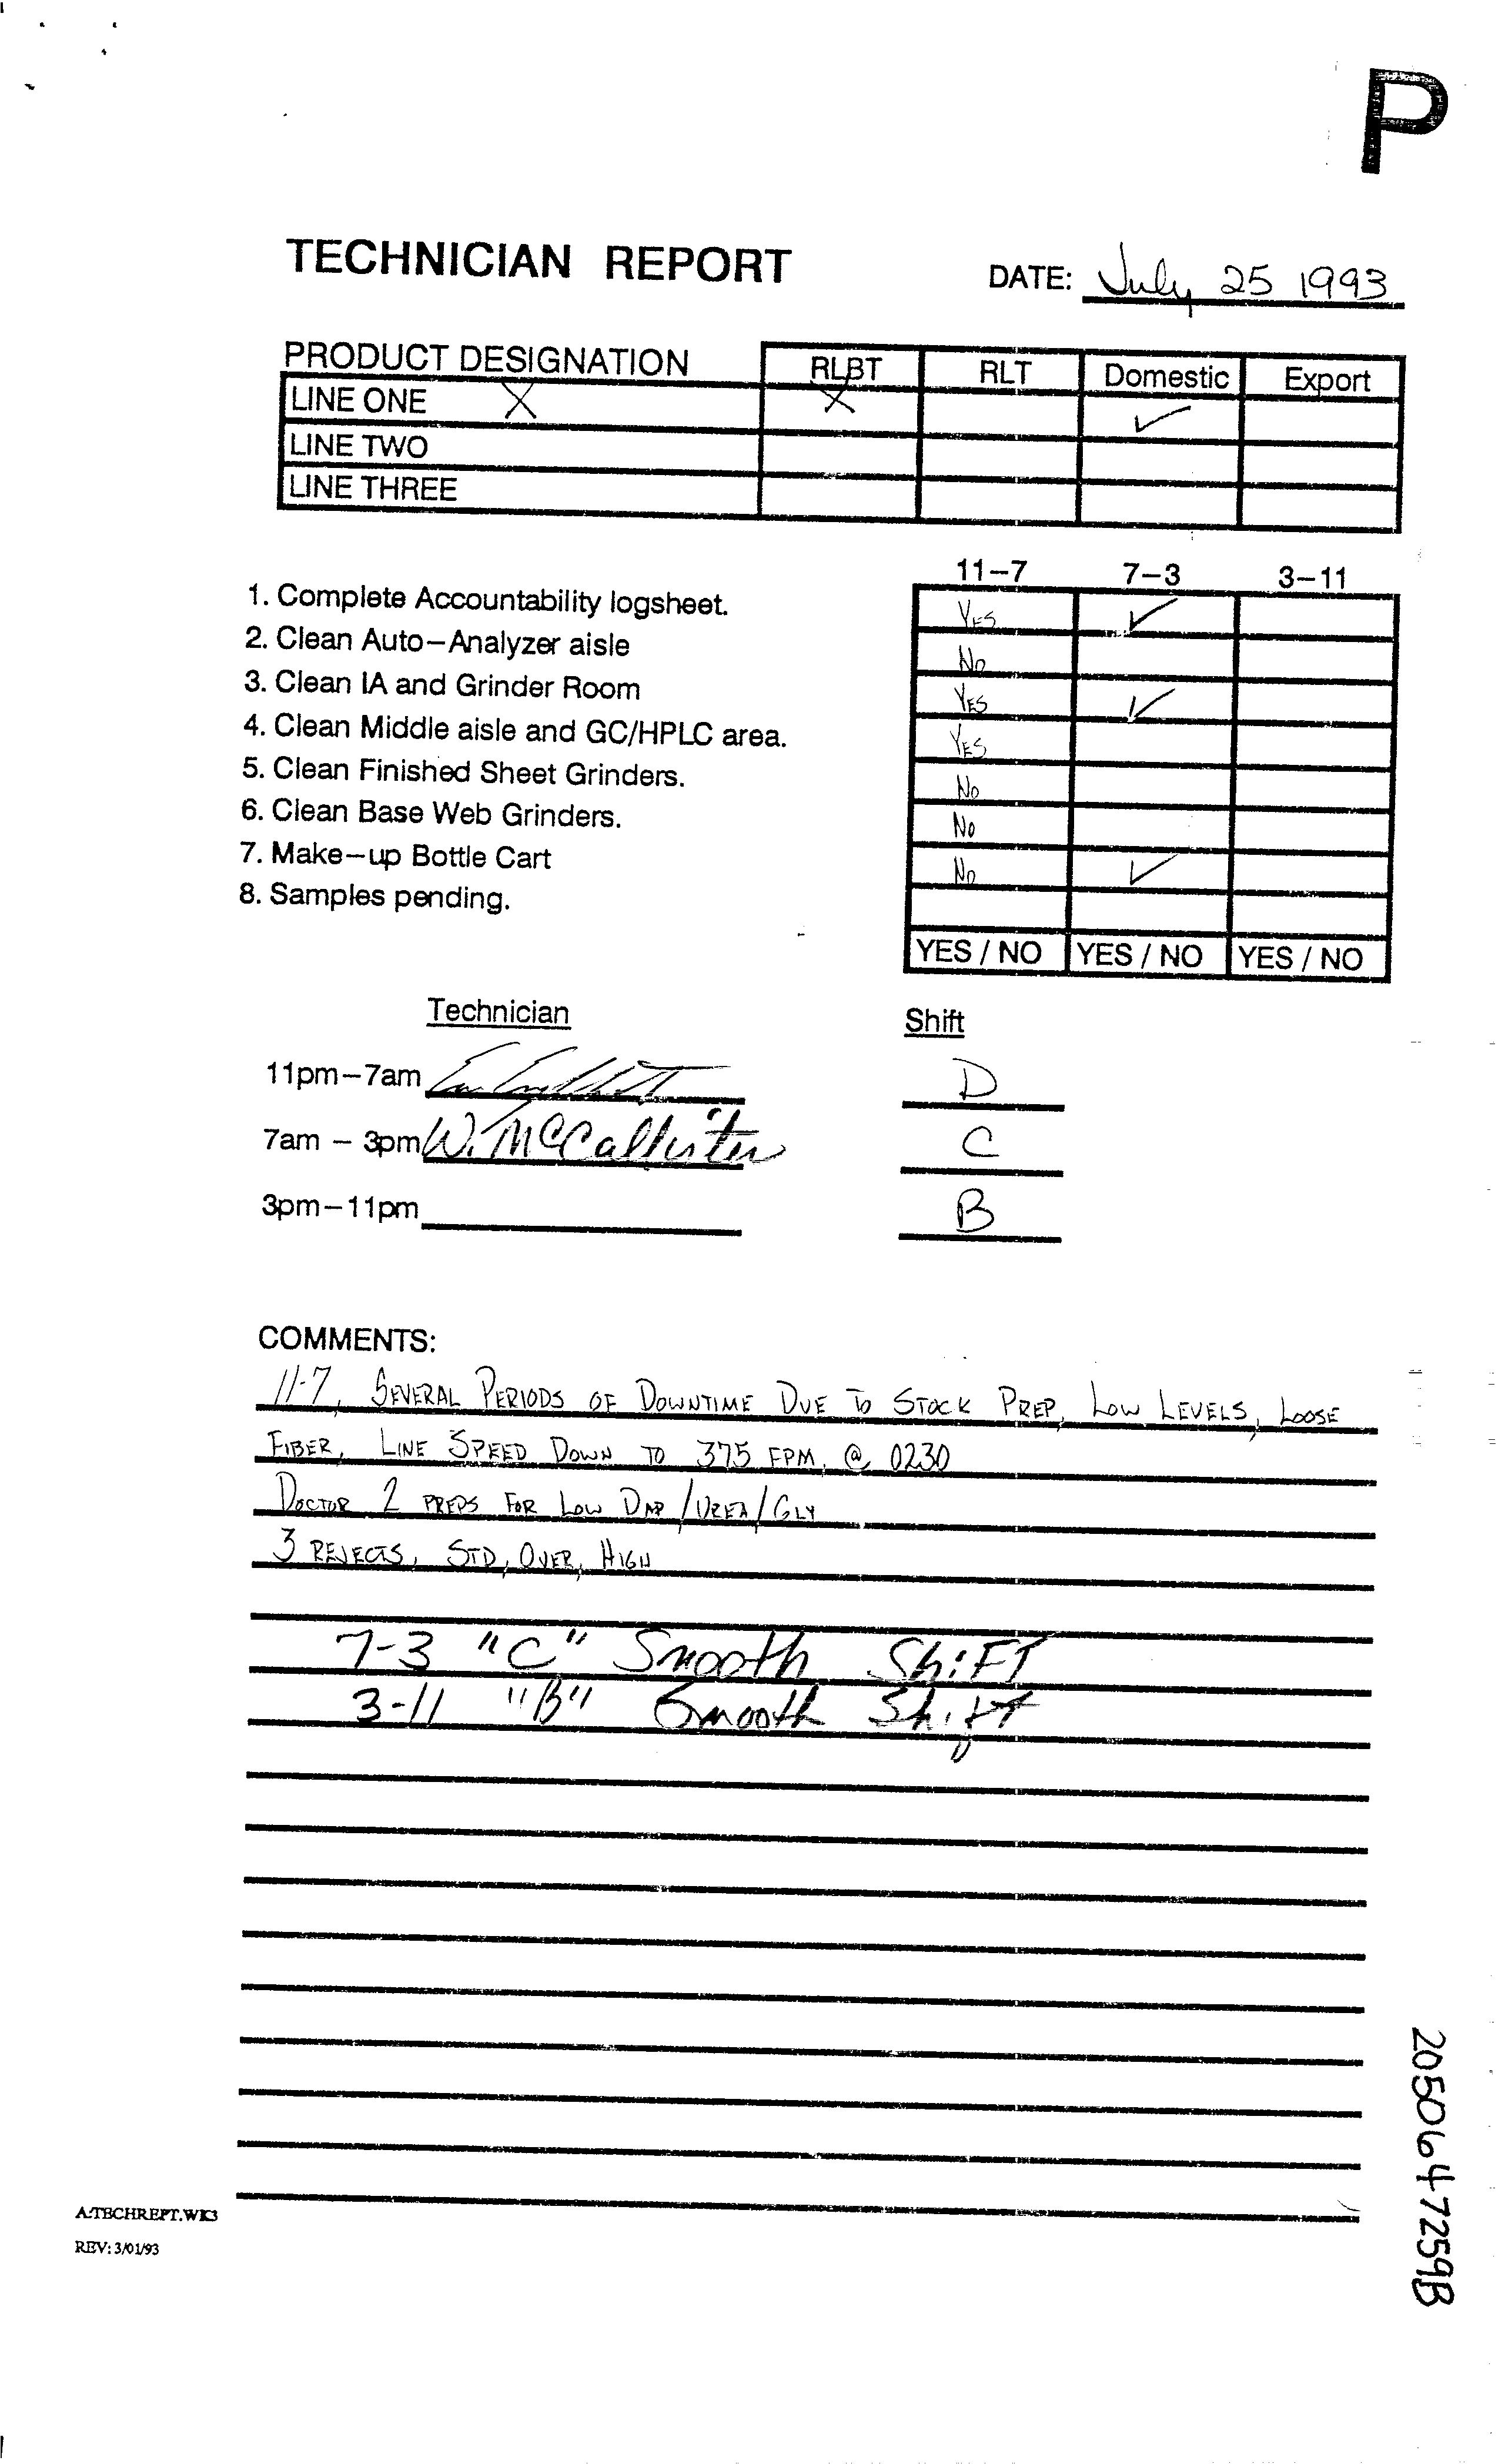 P
TECHNICIAN REPORT
DATE: July 25 1993
PRODUCT DESIGNATION RLBT RLT Domestic Export
LINE ONE X X ✓
LINE TWO
LINE THREE
11-7 7-3 3-11
1. Complete Accountability logsheet. YES ✓
2. Clean Auto-Analyzer aisle NO
3. Clean IA and Grinder Room YES ✓
4. Clean Middle aisle and GC/HPLC area. YES
5. Clean Finished Sheet Grinders. NO
6. Clean Base Web Grinders. NO
7. Make-up Bottle Cart NO ✓
8. Samples pending.
YES / NO YES / NO YES / NO
Technician Shift
11pm-7am D
7am - 3pm W. McCallister C
3pm-11pm B
COMMENTS:
11-7, SEVERAL PERIODS OF DOWNTIME DUE TO STOCK PREP, LOW LEVELS, LOOSE
FIBER, LINE SPEED DOWN TO 375 FPM, @ 0230
DOCTOR 2 PREPS FOR LOW DAP/UREA/GLY
3 REJECTS, STD, OVER, HIGH
7-3 "C" Smooth ShiFT
3-11 "B" Smooth Shift
A:TECHREPT.WK3
REV: 3/01/93
2050647259B